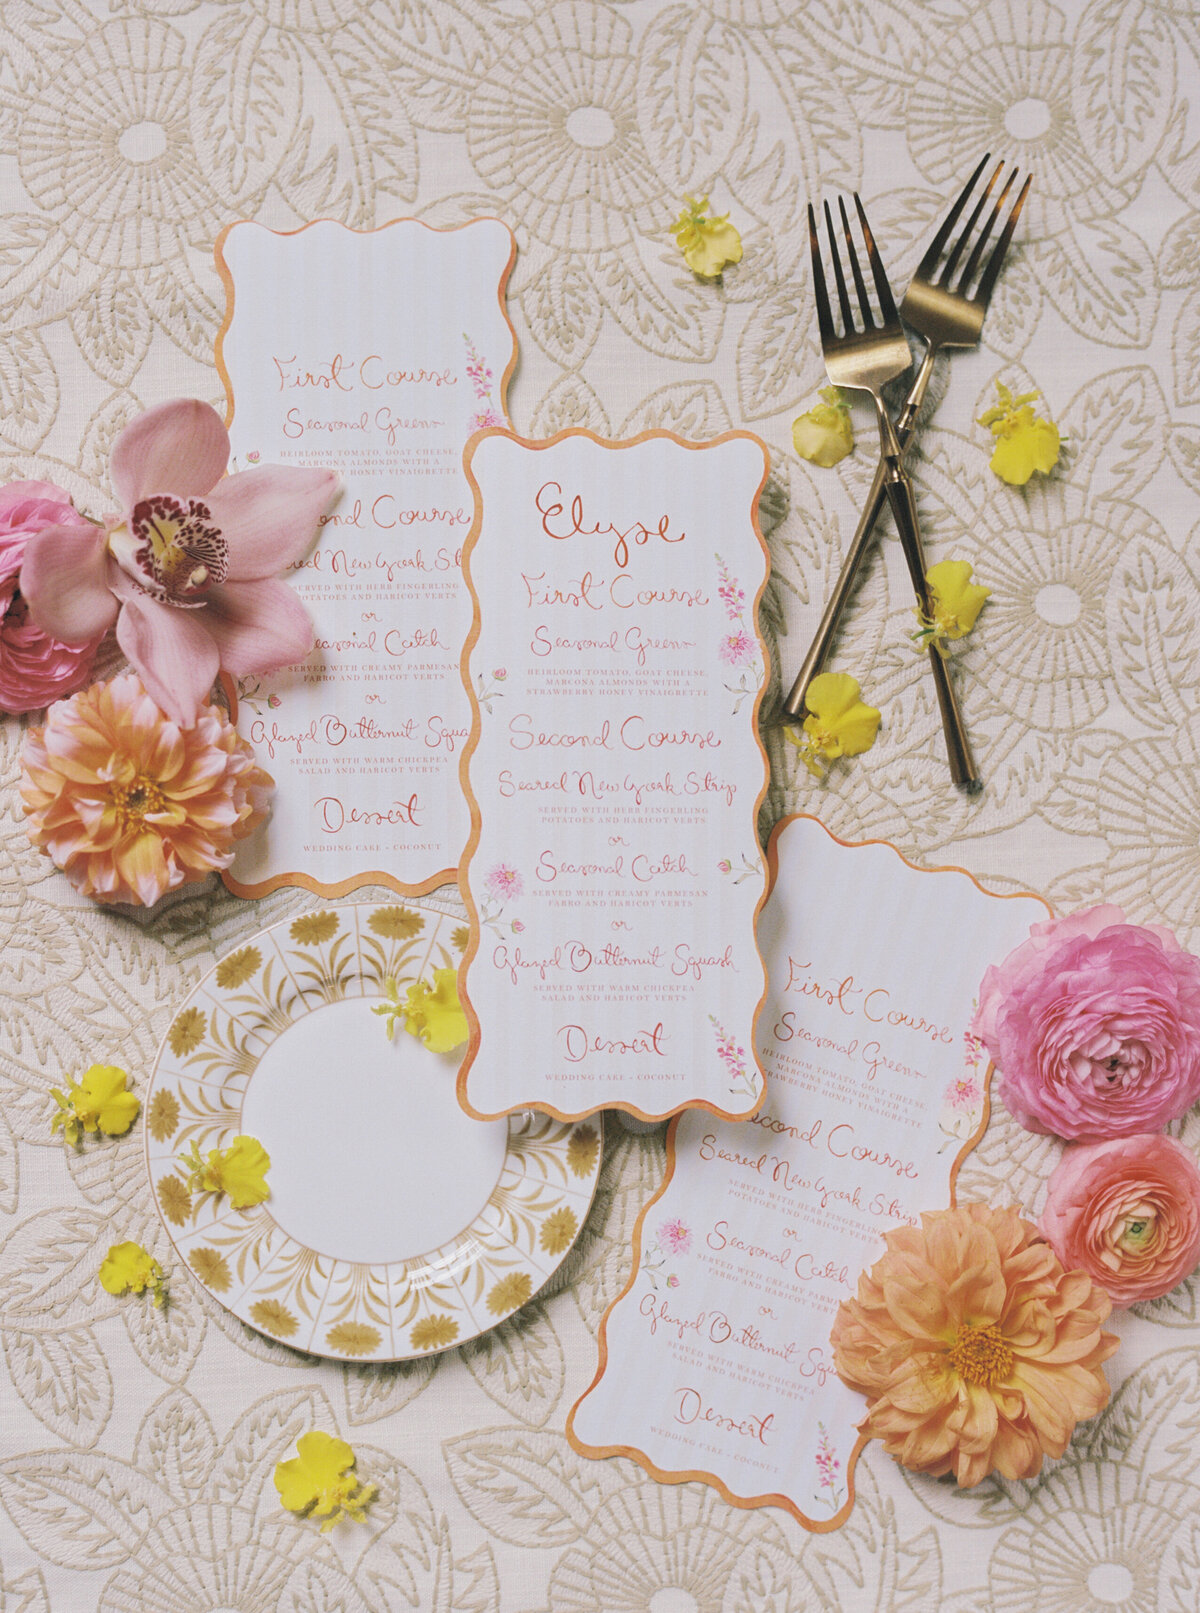 First Course
Seasonal Greens
HEIRLOOM TOMATO, GOAT CHEESE,
MARCONA ALMONDS WITH A
HONEY VINAIGRETTE
Course
New York
SERVED WITH HERB FINGERLING
POTATOES AND HARICOT VERTS
or
Seasonal Catch
SERVED WITH CREAMY PARMESAN
FARRO AND HARICOT VERTS
or
Glazed Butternut
SERVED WITH WARM CHICKPEA
SALAD AND HARICOT VERTS
Dessert
WEDDING CAKE - COCONUT
Elyse
First Course
Seasonal Greens
HEIRLOOM TOMATO, GOAT CHEESE,
MARCONA ALMONDS WITH A
STRAWBERRY HONEY VINAIGRETTE
Second Course
Seared New York Strip
SERVED WITH HERB FINGERLING
POTATOES AND HARICOT VERTS
or
Seasonal Catch
SERVED WITH CREAMY PARMESAN
FARRO AND HARICOT VERTS
or
Glazed Butternut Squash
SERVED WITH WARM CHICKPEA
SALAD AND HARICOT VERTS
Dessert
WEDDING CAKE - COCONUT
First Course
Seasonal Greens
HEIRLOOM TOMATO, GOAT CHEESE,
MARCONA ALMONDS WITH A
HONEY VINAIGRETTE
Second Course
Seared New York Strip
SERVED WITH HERB FINGERLING
POTATOES AND HARICOT VERTS
or
Seasonal Catch
SERVED WITH CREAMY
FARRO AND HARICOT VERTS
or
Glazed Butternut
SERVED WITH WARM CHICKPEA
SALAD AND HARICOT VERTS
Dessert
WEDDING CAKE - COCONUT